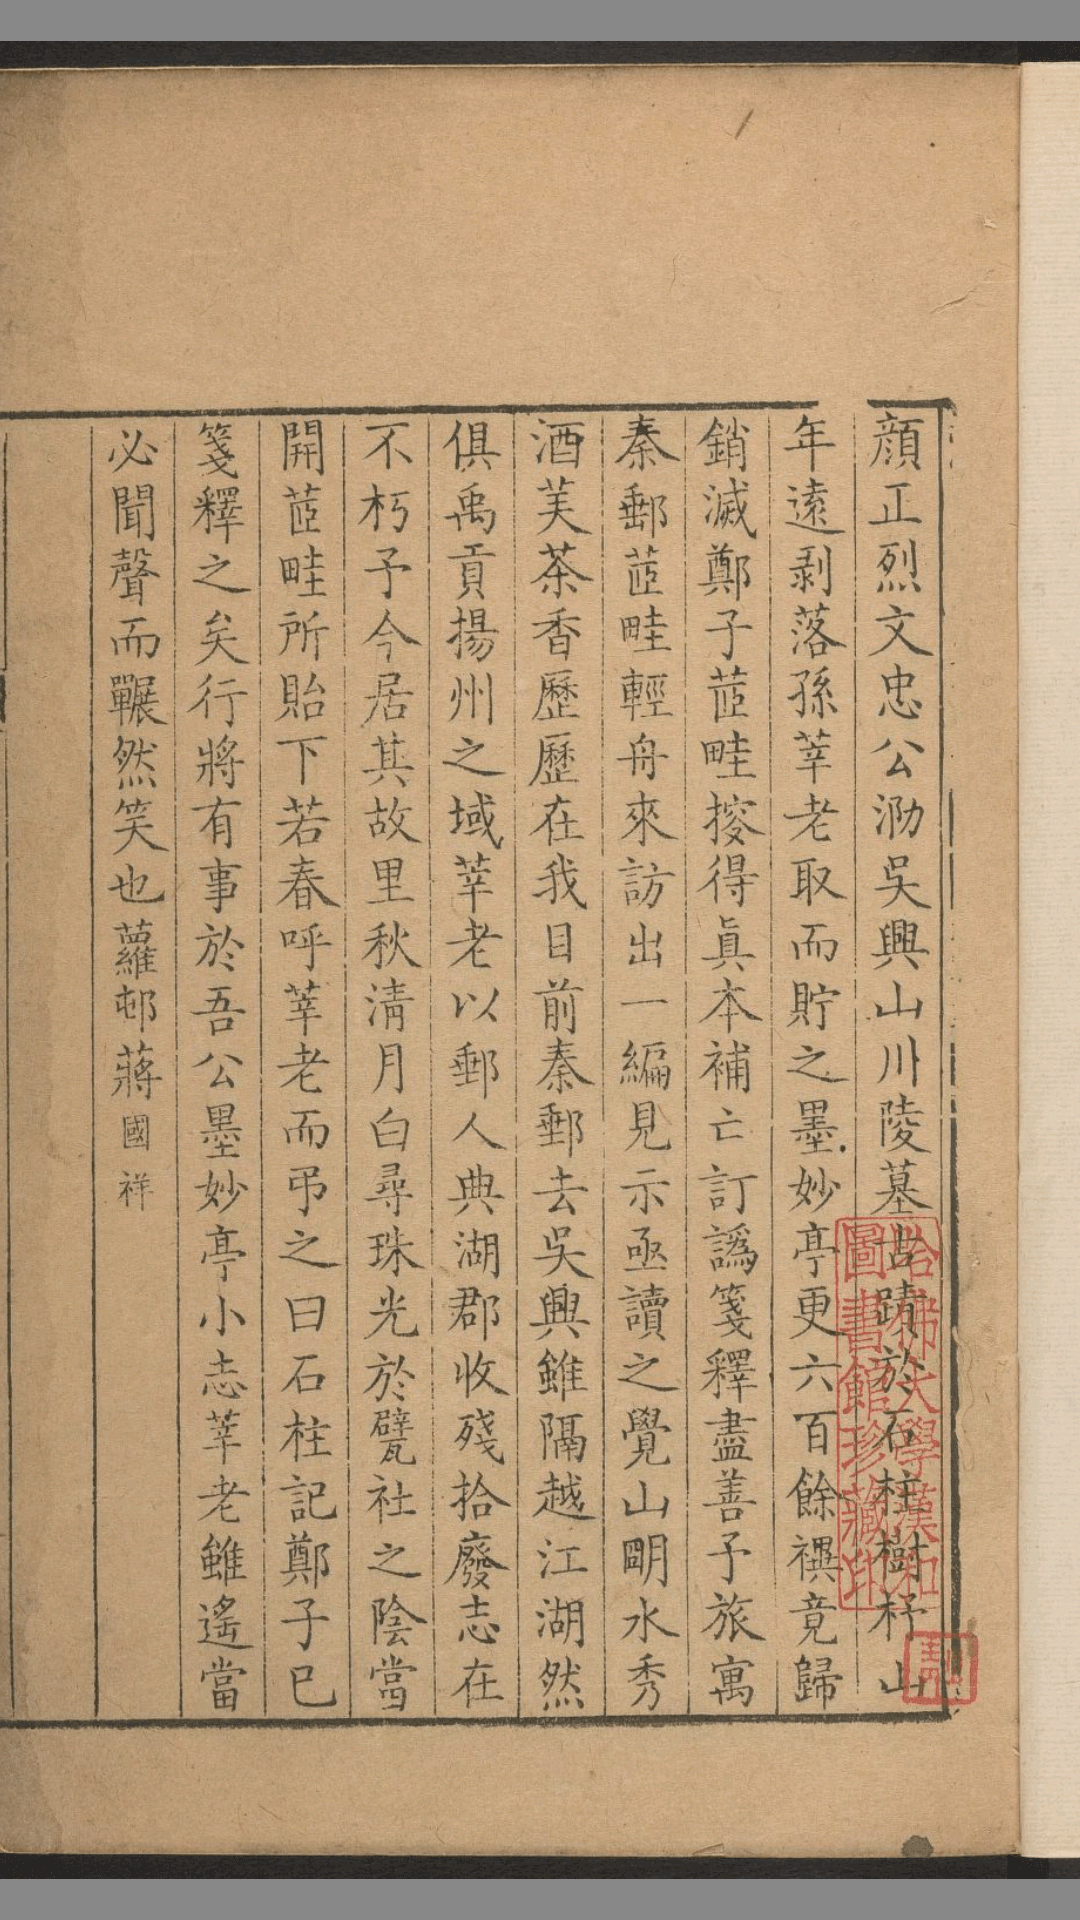 顔正烈文忠公泐吳興山川陵墓古蹟於石柱樹杼山
年遠剥落孫莘老取而貯之墨妙亭更六百餘禩竟歸
銷滅鄭子芷畦搜得眞本補亡訂譌箋釋盡善予旅寓
秦郵芷畦輕舟來訪出一編見示亟讀之覺山明水秀
酒美茶香歷歷在我目前秦郵去吳興雖隔越江湖然
俱禹貢揚州之域莘老以郵人典湖郡收殘拾廢志在
不朽予今居其故里秋淸月白尋珠光於甓社之陰當
開芷畦所貽下若春呼莘老而弔之曰石柱記鄭子已
箋釋之矣行將有事於吾公墨妙亭小志莘老雖遙當
必聞聲而囅然笑也蘿邨蔣國祥
哈佛大學漢和
圖書館珍藏印